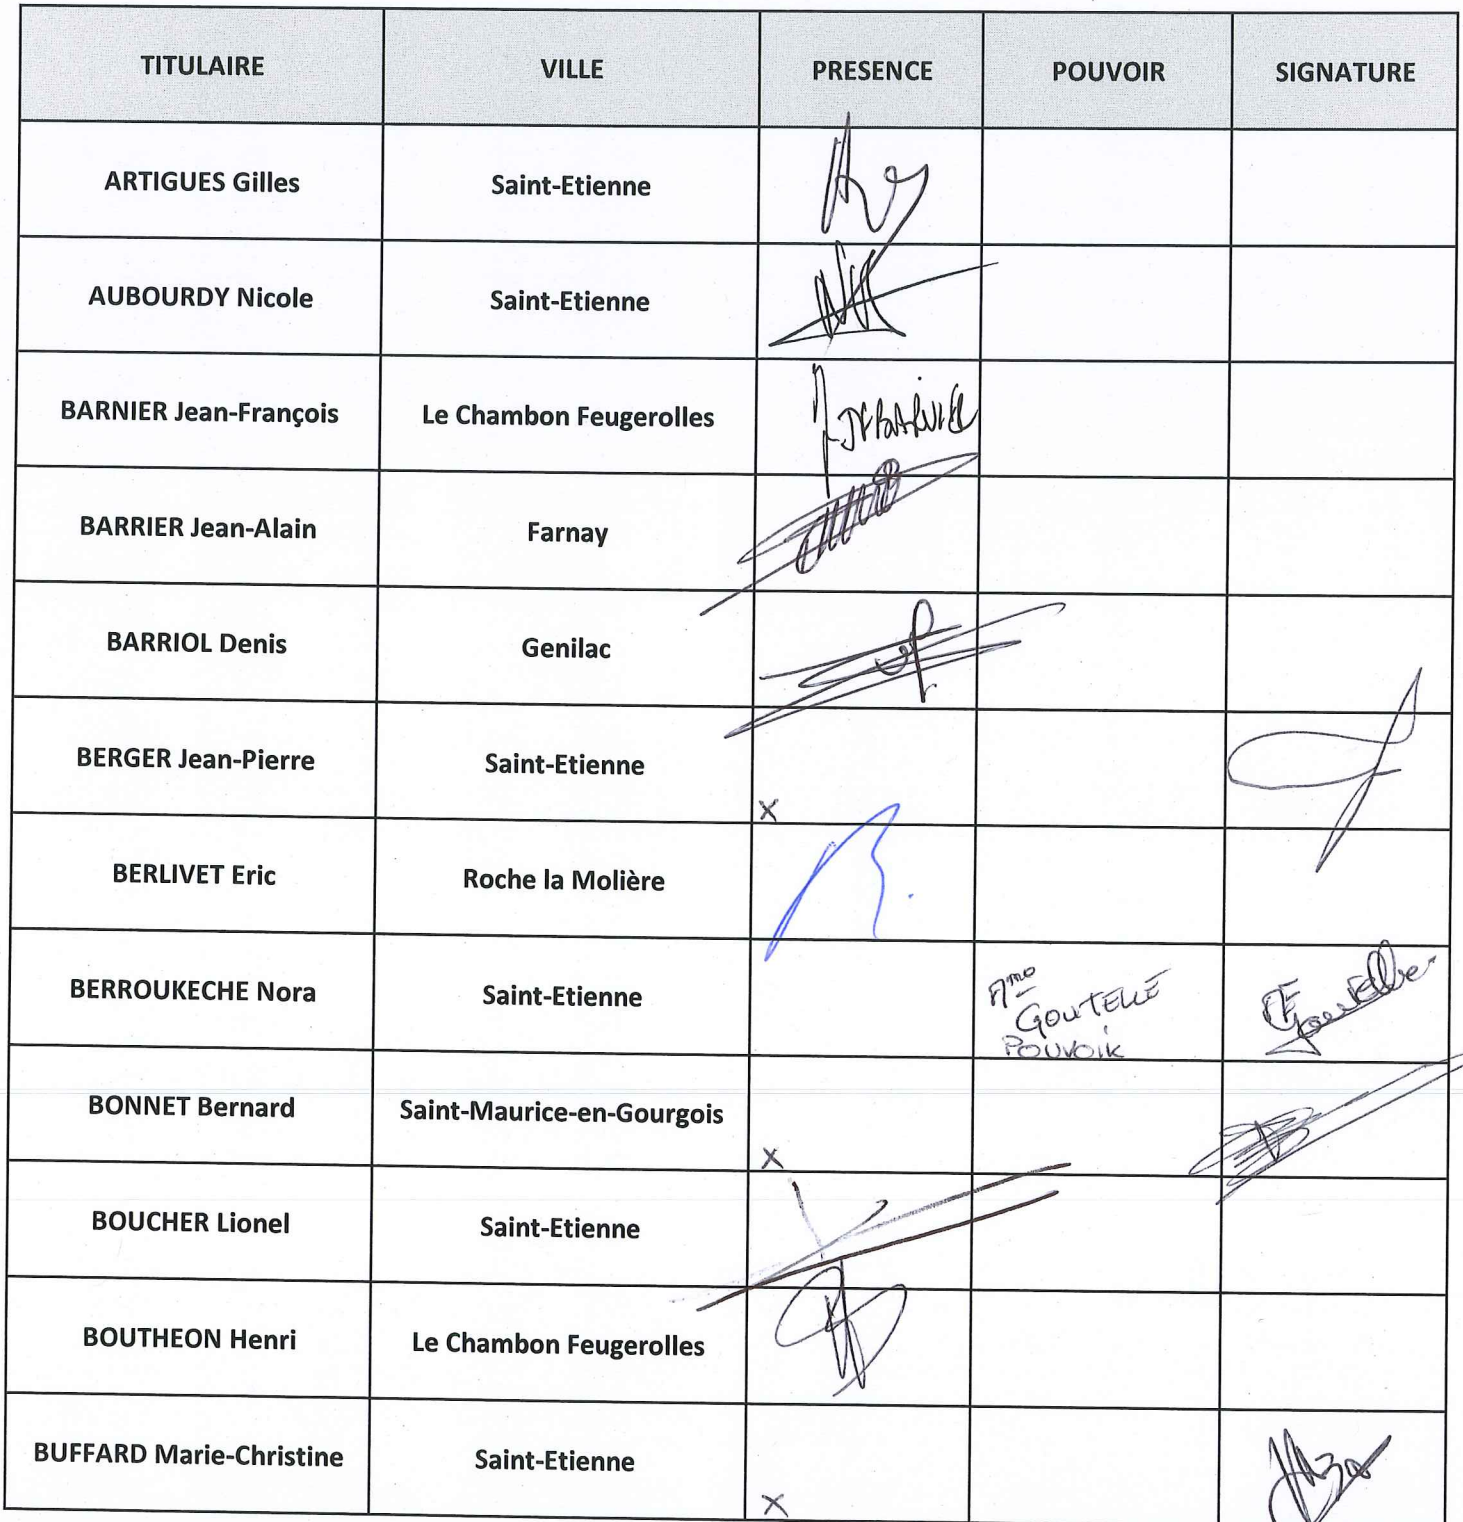 TITULAIRE VILLE PRESENCE POUVOIR SIGNATURE
ARTIGUES Gilles Saint-Etienne
AUBOURDY Nicole Saint-Etienne
BARNIER Jean-François Le Chambon Feugerolles JFBARNIER
BARRIER Jean-Alain Farnay
BARRIOL Denis Genilac
BERGER Jean-Pierre Saint-Etienne X
BERLIVET Eric Roche la Molière
BERROUKECHE Nora Saint-Etienne Mme
GOUTELLE
POUVOIR
BONNET Bernard Saint-Maurice-en-Gourgois X
BOUCHER Lionel Saint-Etienne
BOUTHEON Henri Le Chambon Feugerolles
BUFFARD Marie-Christine Saint-Etienne X